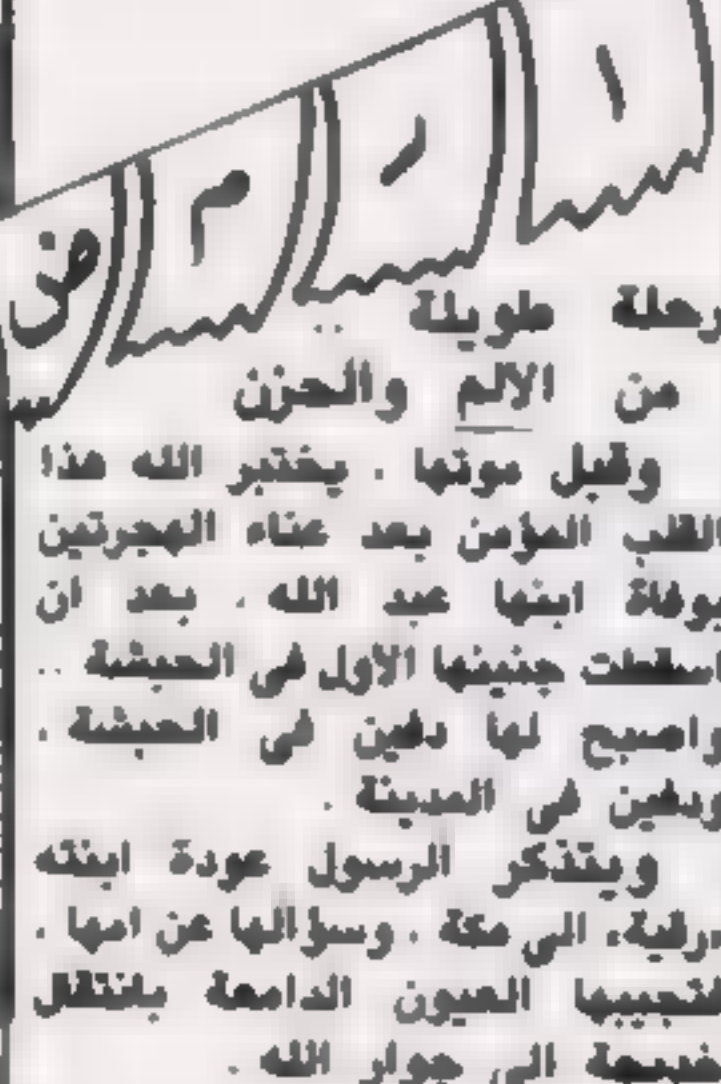 ا د م ض
رحلة طويلة ..
من الالم والحزن
وقبل موتها . يختبر الله هذا
القلب المؤمن بعد عناء الهجرتين
بوفاة ابنها عبد الله . بعد ان
اسقطت جنينها الاول فى الحبشة ..
واصبح لها دفين فى الحبشة .
ودفين فى المدينة .
ويتذكر الرسول عودة ابنته
«رقية» الى مكة . وسؤالها عن امها .
فتجيبها العيون الدامعة بانتقال
خديجة الى جوار الله .